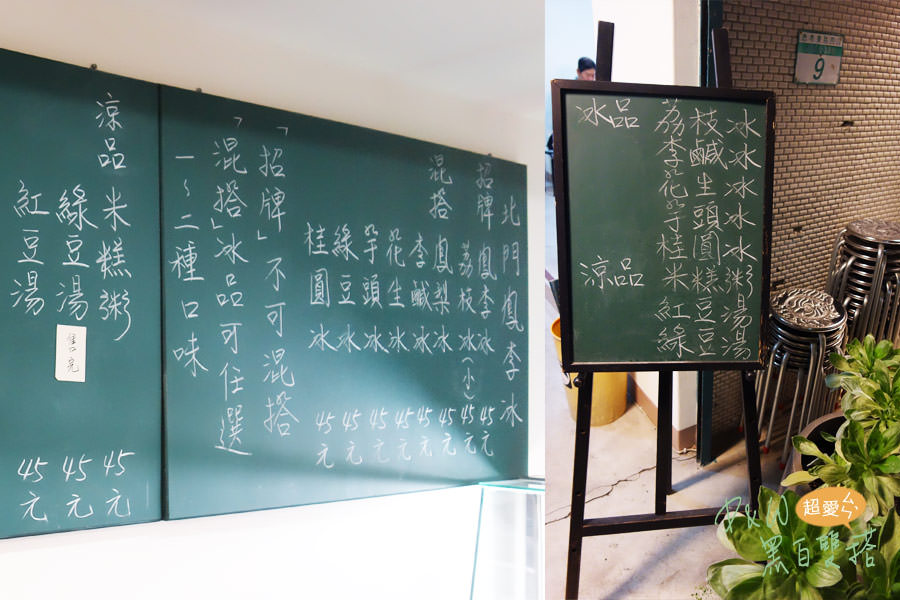 北門鳳李冰
招牌 鳳李冰 45元
荔枝冰(小) 45元
混搭 鳳梨冰 45元
李鹹冰 45元
花生冰 45元
芋頭冰 45元
綠豆冰 45元
桂圓冰 45元
「招牌」不可混搭
「混搭」冰品可任選
一~二種口味
涼品 米糕粥 45元
綠豆湯 45元
售完
紅豆湯 45元
冰品 荔枝冰
李鹹冰
花生冰
芋頭冰
桂圓冰
涼品 米糕粥
紅豆湯
綠豆湯
9
超愛
黑白雙搭